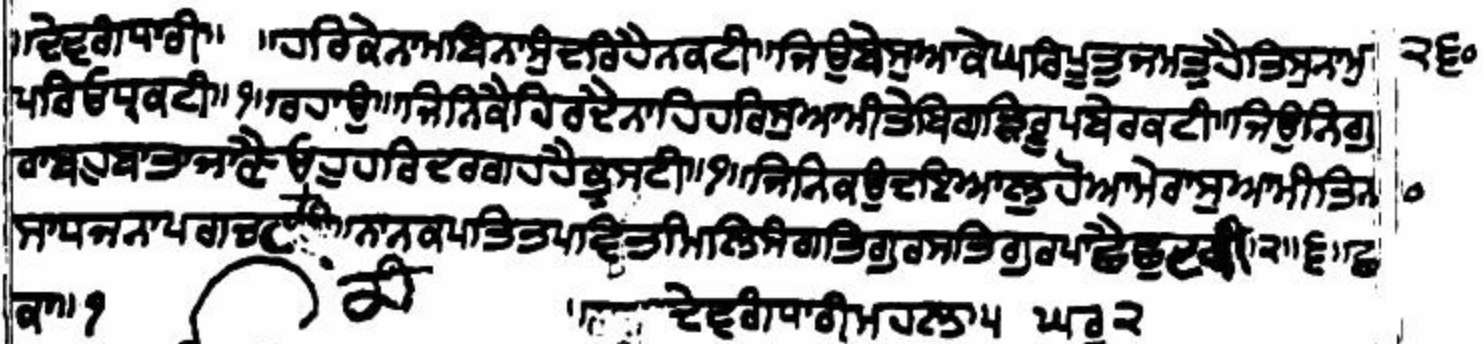 ॥ਦੇਵਗੰਧਾਰੀ॥ ॥ਹਰਿਕੇਨਾਮਬਿਨਾਸੁੰਦਰਿਹੈਨਕਟੀ॥ਜਿਉਬੇਸੁਆਕੇਘਰਿਪੂਤੁਜਮਤੁਹੈਤਿਸੁਨਾਮੁ ੨੬੦
ਪਰਿਓਧ੍ਰਕਟੀ॥੧॥ਰਹਾਉ॥ਜਿਨਿਕੈਹਿਰਦੈਨਾਹਿਹਰਿਸੁਆਮੀਤੇਬਿਗੜਿਰੂਪਬੇਰਕਟੀ॥ਜਿਉਨਿਗੁ
ਰਾਬਹੁਬਾਤਾਜਾਣੈਓਹੁਹਰਿਦਰਗਹਹੈਕੂਸਟੀ॥੧॥ਜਿਨਿਕਉਦਇਆਲੁਹੋਆਮੇਰਾਸੁਆਮੀਤਿਨ ੦
ਸਾਧਜਨਾਪਗਚ ॥ਨਾਨਕਪਤਿਤਪਵਿਤਮਿਲਿਸੰਗਤਿਗੁਰਸਤਿਗੁਰਪਾਛੈਛੁਟਕੀ॥੨॥੬॥ਛ
ਕਾ॥੧ ਦੇਵਗੰਧਾਰੀਮਹਲਾ੫ ਘਰੁ੨